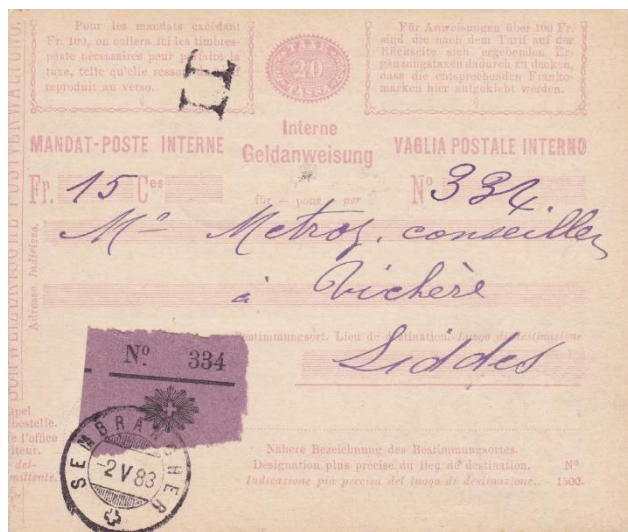 Pour les mandats excédant
Fr. 100, on collera ici les timbres-
poste nécessaires pour parfaire la
taxe, telle qu'elle ressort du tarif
reproduit au verso.
TAXE
20
TASSA
Für Anweisungen über 100 Fr.
sind die nach dem Tarif auf der
Rückseite sich ergebenden Er-
gänzungstaxen dadurch zu decken,
dass die entsprechenden Franko-
marken hier aufgeklebt werden.
II
MANDAT-POSTE INTERNE
Interne
Geldanweisung
VAGLIA POSTALE INTERNO
Fr. 15 Ces
für – pour – per
No 334
Mr Metroz, conseiller
à Vichère
Adresse. Indirizzo.
SCHWEIZERISCHE POSTVERWALTUNG.
Bestimmungsort. Lieu de destination. Luogo di destinazione
Liddes
No. 334
SEMBRANCHER
-2 V 83
bestelle.
l'office
del-
mittente.
Nähere Bezeichnung des Bestimmungsortes.
Désignation plus précise du lieu de destination.
Indicazione più precisa del luogo di destinazione.
No
1500.